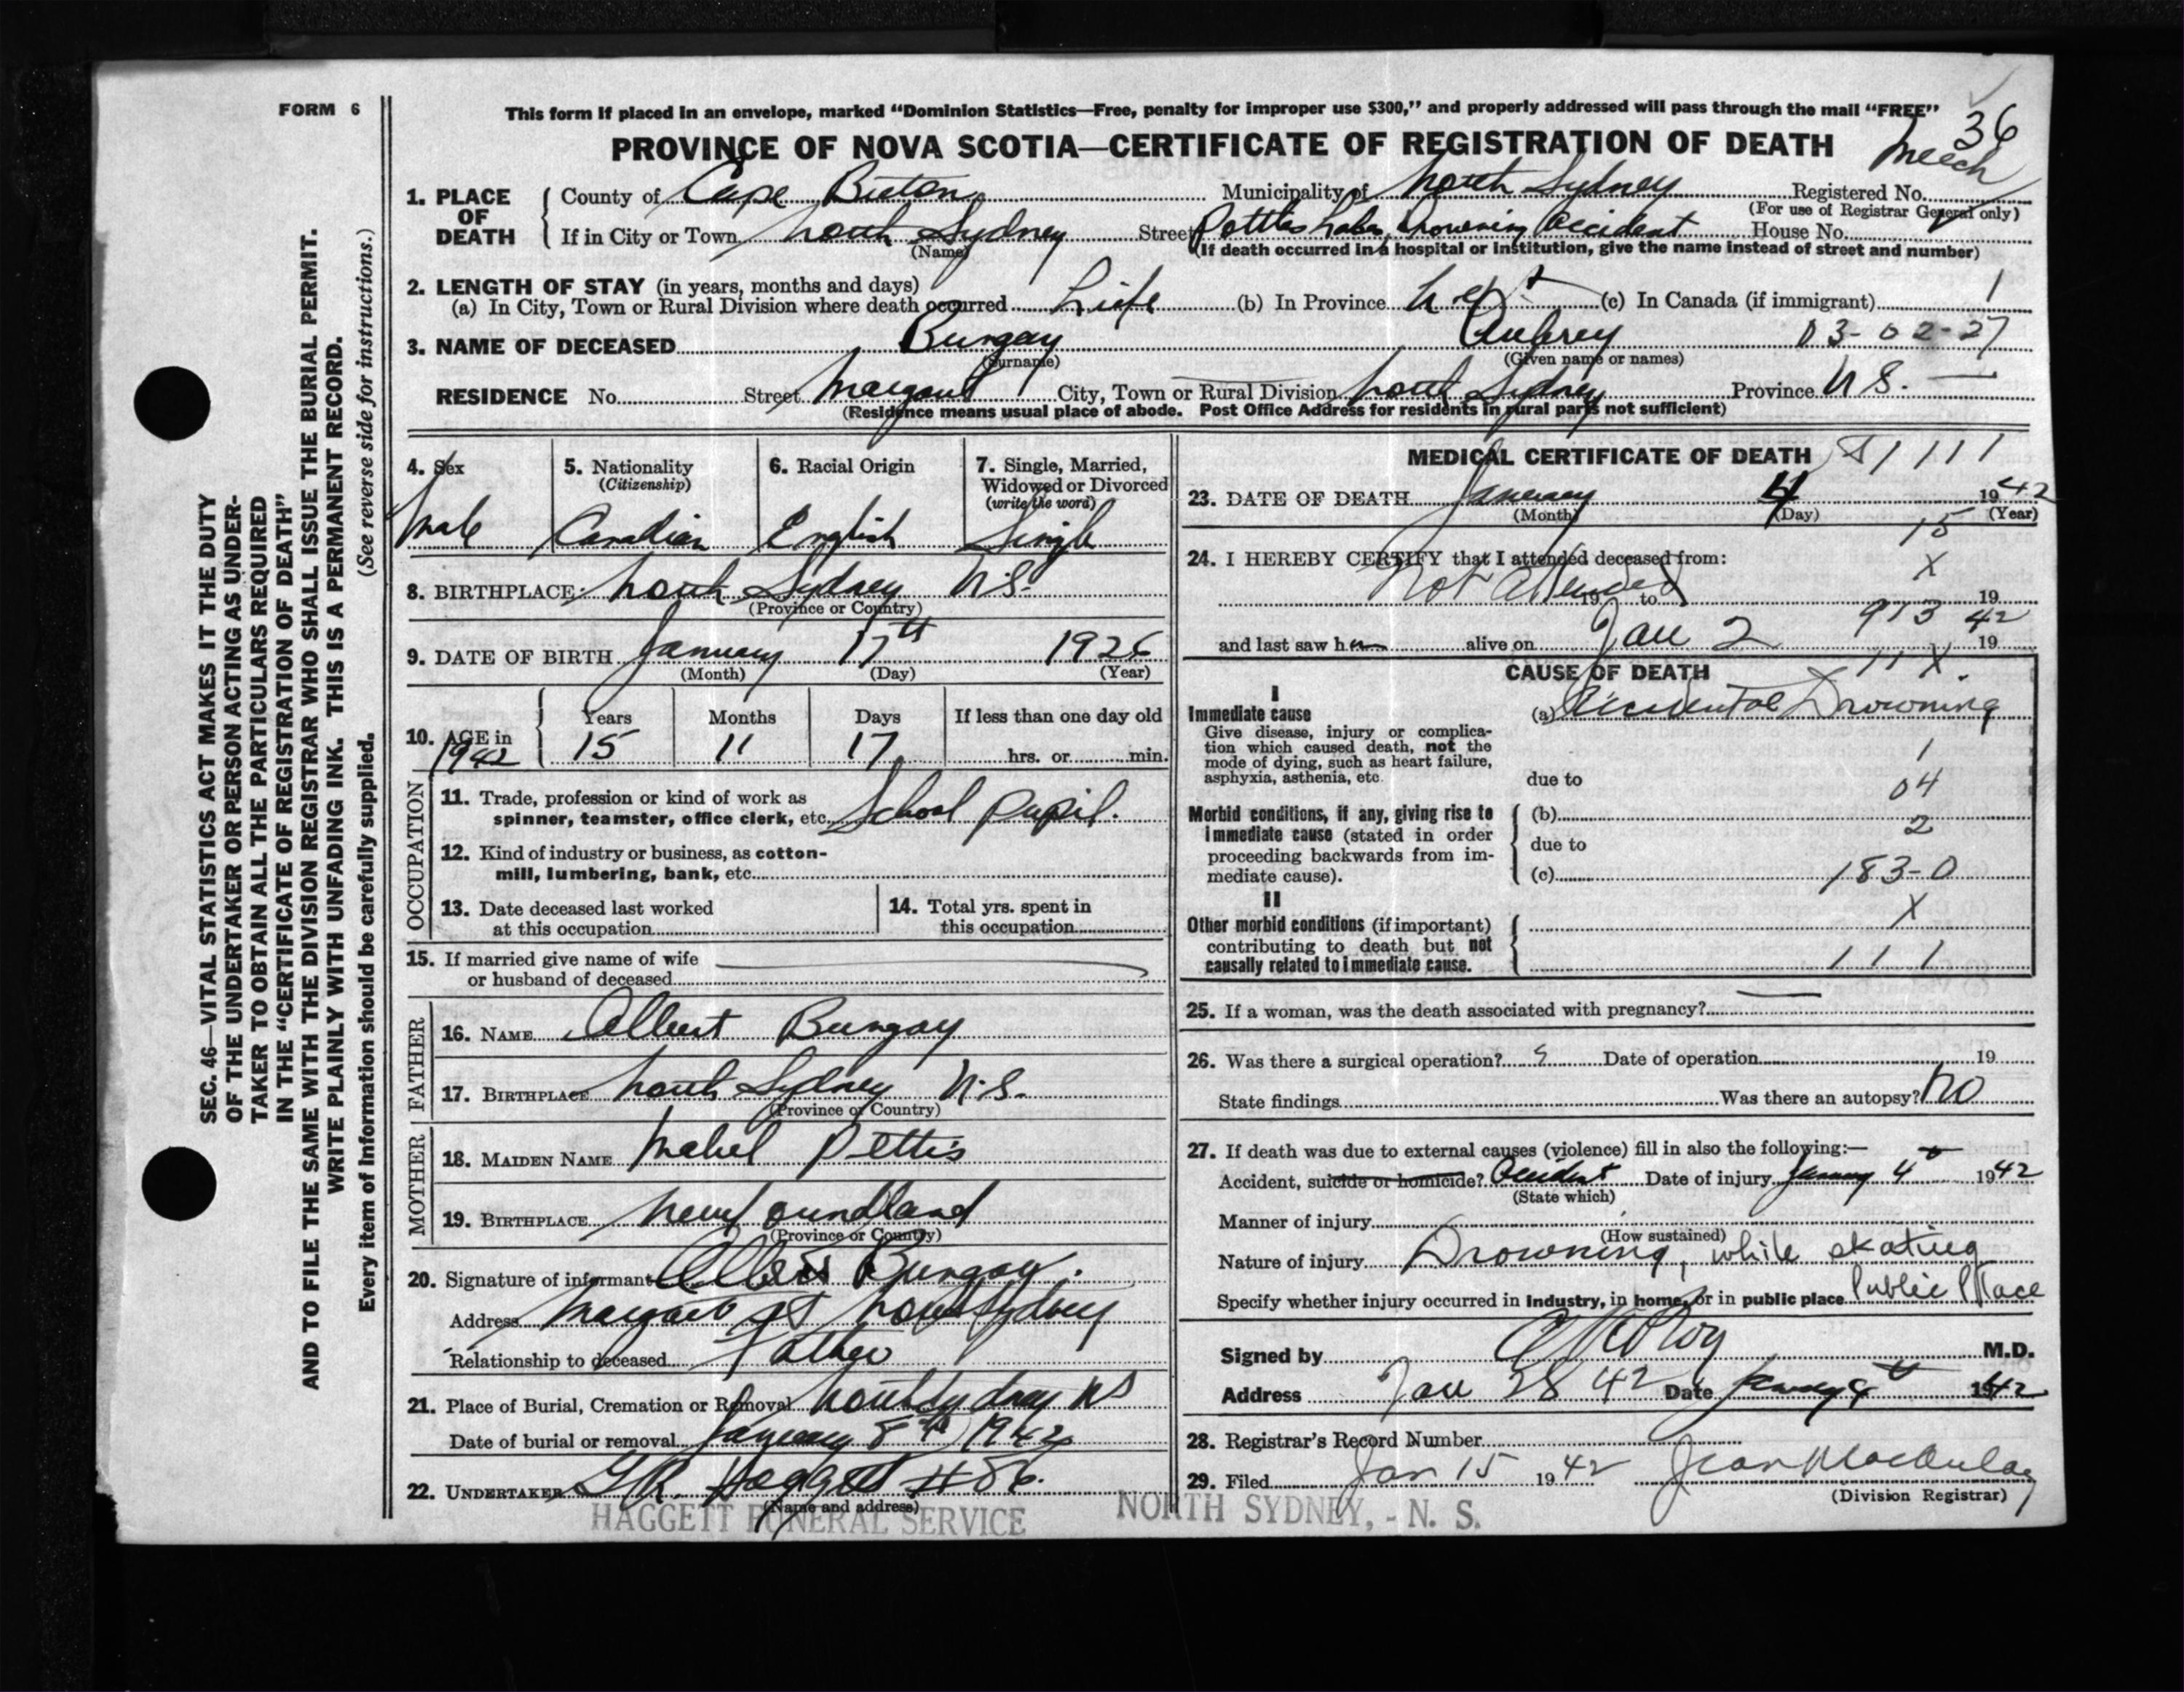 FORM 6
This form if placed in an envelope, marked "Dominion Statistics—Free, penalty for improper use $300," and properly addressed will pass through the mail "FREE"
36
PROVINCE OF NOVA SCOTIA—CERTIFICATE OF REGISTRATION OF DEATH
1. PLACE OF DEATH
County of Cape Breton Municipality of North Sydney Registered No.
(For use of Registrar General only)
If in City or Town North Sydney Street Drowning Accident House No.
(Name) (If death occurred in a hospital or institution, give the name instead of street and number)
2. LENGTH OF STAY (in years, months and days)
(a) In City, Town or Rural Division where death occurred Life (b) In Province (c) In Canada (if immigrant) 1
3. NAME OF DECEASED Bungay Aubrey 03-02-27
(Surname) (Given name or names)
RESIDENCE No. Street Margaret City, Town or Rural Division North Sydney Province N S.
(Residence means usual place of abode. Post Office Address for residents in rural parts not sufficient)
4. Sex
Male
5. Nationality
(Citizenship)
Canadian
6. Racial Origin
English
7. Single, Married,
Widowed or Divorced
(write the word)
Single
8. BIRTHPLACE: North Sydney N.S.
(Province or Country)
9. DATE OF BIRTH January 17th 1926
(Month) (Day) (Year)
10. AGE in 1942
Years Months Days If less than one day old
15 11 17 hrs. or min.
OCCUPATION
11. Trade, profession or kind of work as
spinner, teamster, office clerk, etc. School pupil.
12. Kind of industry or business, as cotton-
mill, lumbering, bank, etc.
13. Date deceased last worked
at this occupation
14. Total yrs. spent in
this occupation
15. If married give name of wife
or husband of deceased
FATHER
16. NAME Albert Bungay
17. BIRTHPLACE North Sydney N.S.
(Province or Country)
MOTHER
18. MAIDEN NAME Mabel Pettis
19. BIRTHPLACE Newfoundland
(Province or Country)
20. Signature of informant Albert Bungay.
Address Margaret St North Sydney
Relationship to deceased Father
21. Place of Burial, Cremation or Removal North Sydney NS
Date of burial or removal January 8th 1942
22. UNDERTAKER G.R. Haggett #86.
(Name and address)
HAGGETT FUNERAL SERVICE NORTH SYDNEY, - N. S.
MEDICAL CERTIFICATE OF DEATH
23. DATE OF DEATH January 4 1942
(Month) (Day) (Year)
15
24. I HEREBY CERTIFY that I attended deceased from:
X
Not attended 19 to 19
913
and last saw him alive on Jan 2 19 42
11 X
CAUSE OF DEATH
I
Immediate cause
Give disease, injury or complica-
tion which caused death, not the
mode of dying, such as heart failure,
asphyxia, asthenia, etc.
(a) Accidental Drowning
1
due to
04
Morbid conditions, if any, giving rise to
immediate cause (stated in order
proceeding backwards from im-
mediate cause).
(b)
2
due to
(c) 183-0
II
X
Other morbid conditions (if important)
contributing to death but not
causally related to immediate cause.
1 1 1
25. If a woman, was the death associated with pregnancy?
26. Was there a surgical operation? Date of operation 19
State findings Was there an autopsy? No
27. If death was due to external causes (violence) fill in also the following:—
Accident, suicide or homicide? Accident Date of injury January 4 1942
(State which)
Manner of injury
(How sustained)
Nature of injury Drowning, while skating
Specify whether injury occurred in industry, in home, or in public place Public Place
Signed by M.D.
Address Jan 28 42 Date 1942
28. Registrar's Record Number
29. Filed Jan 15 1942 Jean MacAulay
(Division Registrar)
SEC. 46—VITAL STATISTICS ACT MAKES IT THE DUTY
OF THE UNDERTAKER OR PERSON ACTING AS UNDER-
TAKER TO OBTAIN ALL THE PARTICULARS REQUIRED
IN THE "CERTIFICATE OF REGISTRATION OF DEATH"
AND TO FILE THE SAME WITH THE DIVISION REGISTRAR WHO SHALL ISSUE THE BURIAL PERMIT.
WRITE PLAINLY WITH UNFADING INK. THIS IS A PERMANENT RECORD.
Every item of information should be carefully supplied. (See reverse side for instructions.)